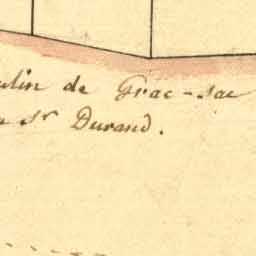 ulin de Grac-sac
u Sr Durand.